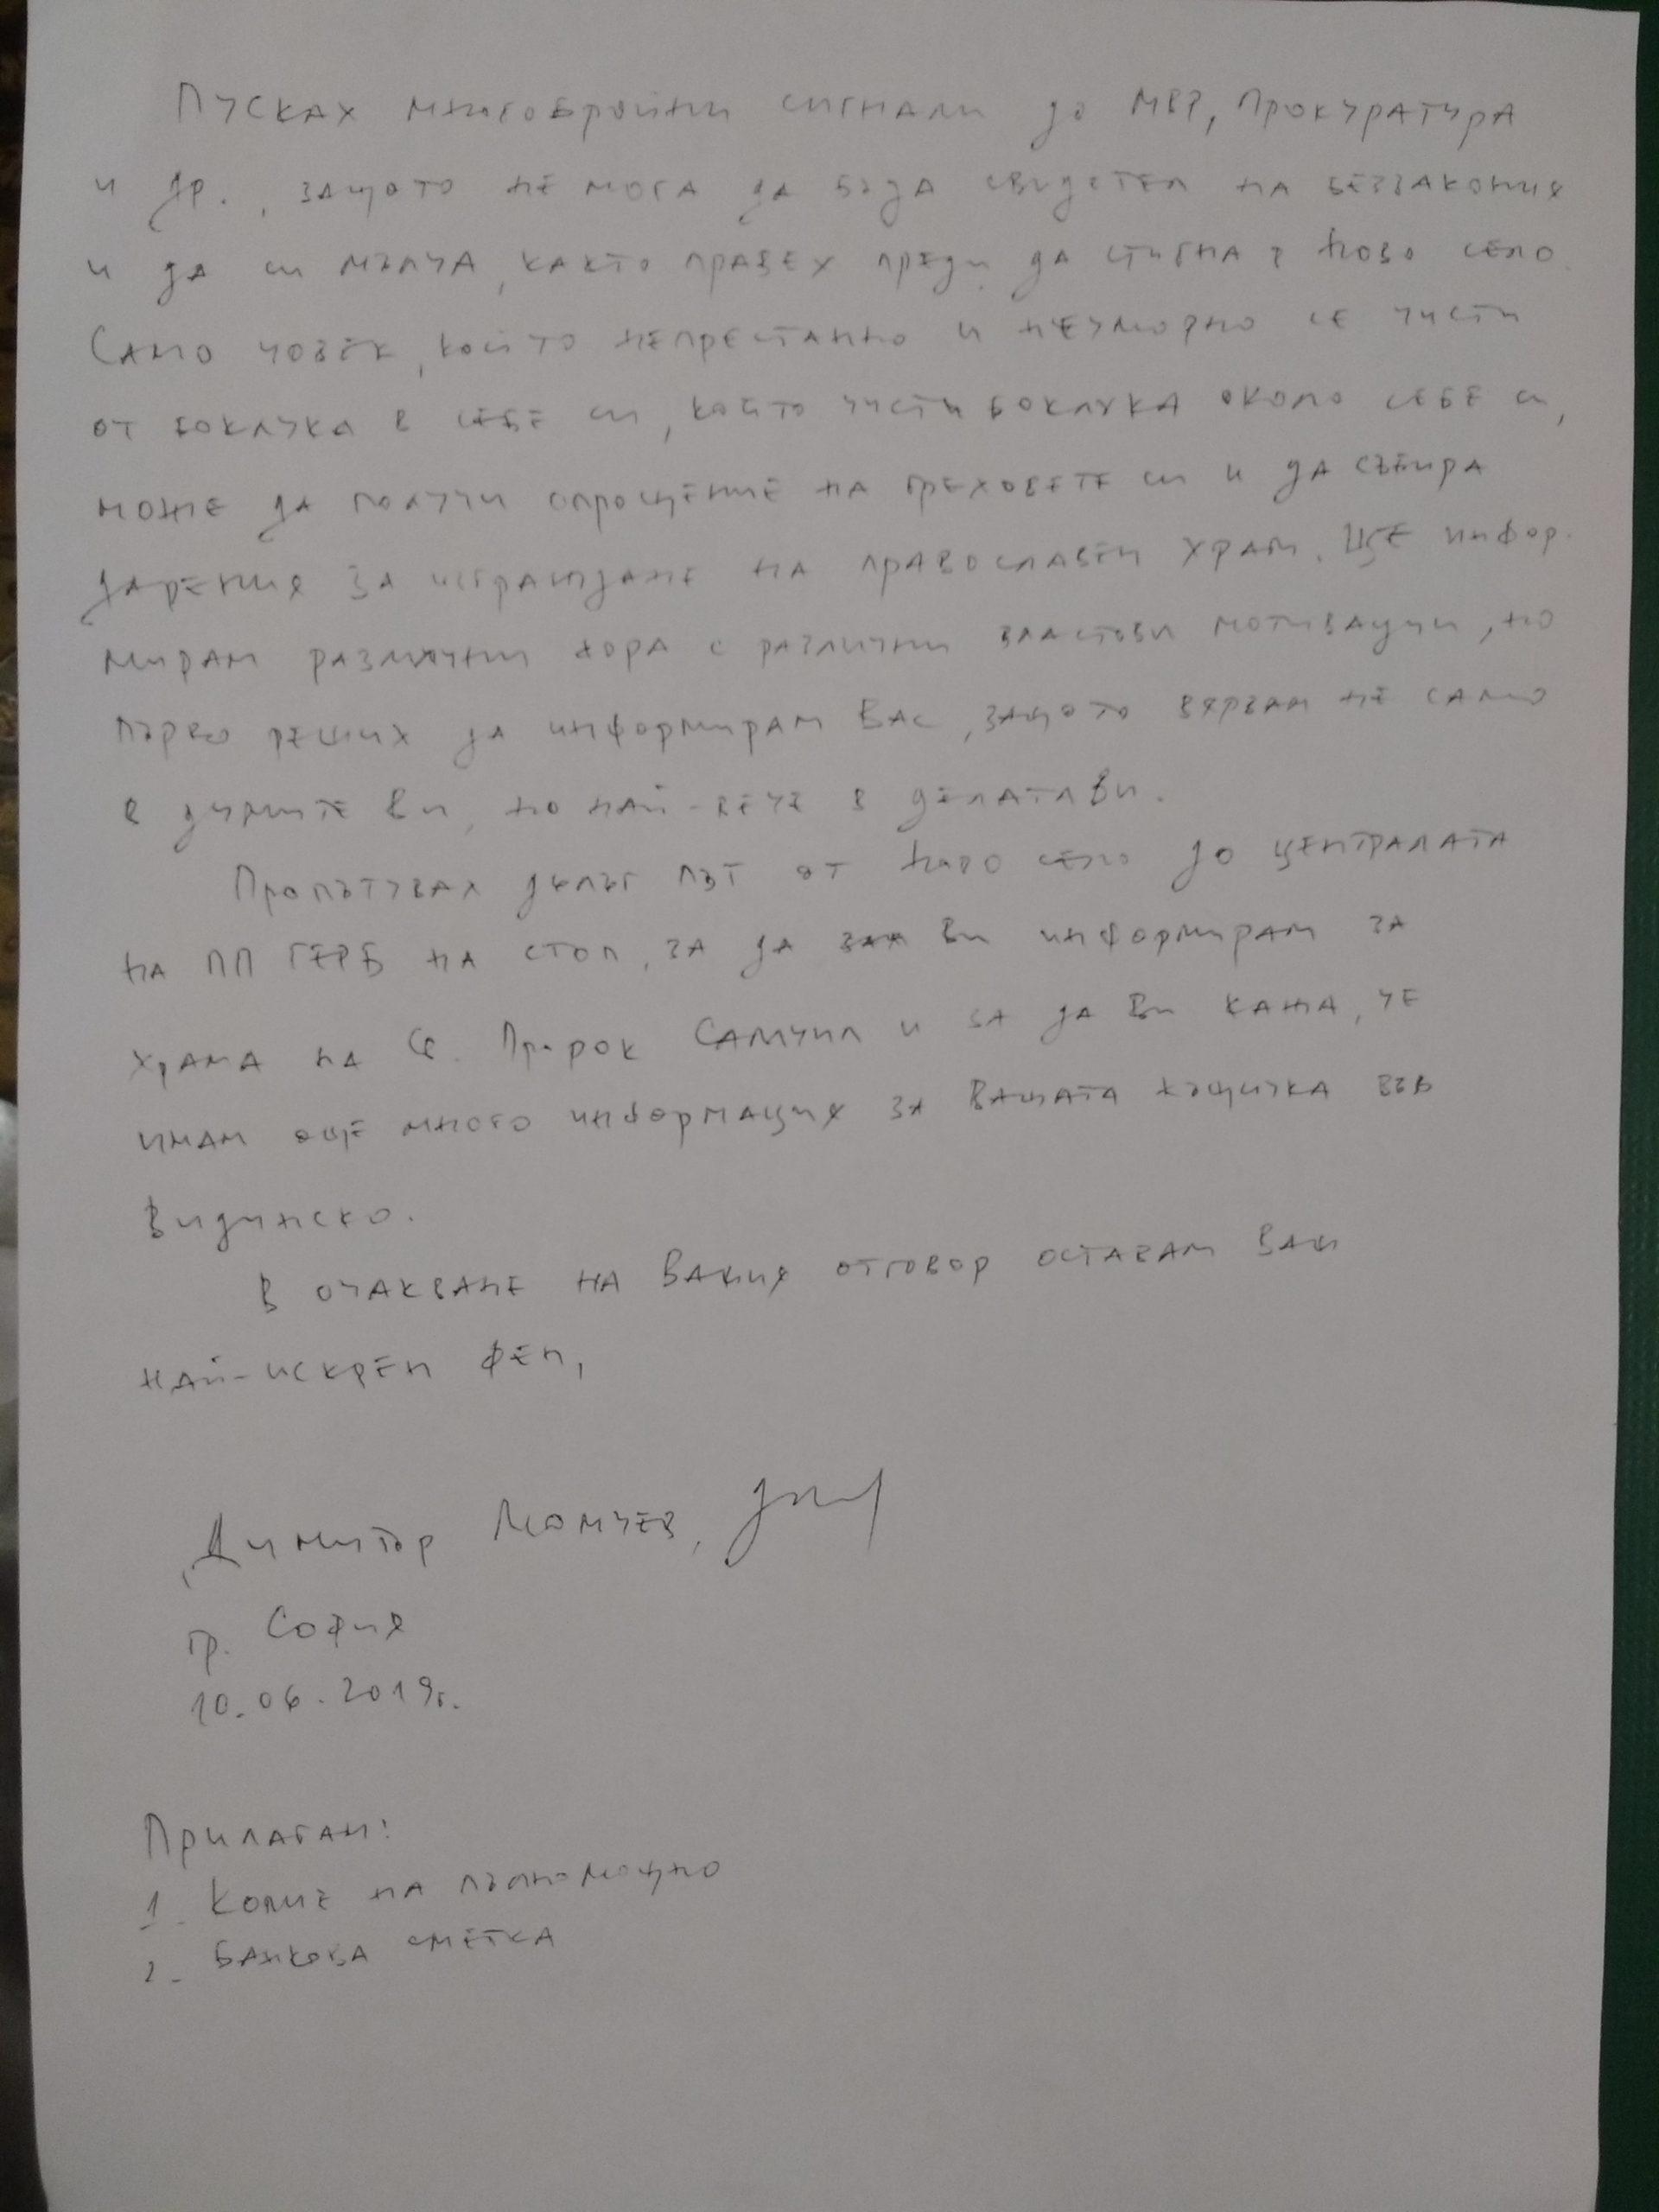 Пусках многобройни сигнали до МВР, Прокуратура
и др., защото не мога да бъда свидетел на беззакония
и да си мълча, както правех преди да стигна в Ново село.
Само човек, който непрестанно и неуморно се чисти
от боклука в себе си, който чисти боклука около себе си,
може да получи опрощение на греховете си и да събира
дарения за изграждане на православен храм. Ще инфор-
мирам различни хора с различни властови мотивации, но
първо реших да информирам Вас, защото вярвам не само
в думите Ви, но най-вече в делата Ви.
Пропътувах дълъг път от Ново село до централата
на ПП ГЕРБ на стоп, за да Ви информирам за
храма на Св. Пророк Самуил и за да Ви кажа, че
имам още много информация за Вашата къщичка във
Видинско.
В очакване на Вашия отговор оставам Ваш
най-искрен фен,
Димитър Момчев,
гр. София
10.06.2019г.
Прилагам:
1. Копие на пълномощно
2. Банкова сметка